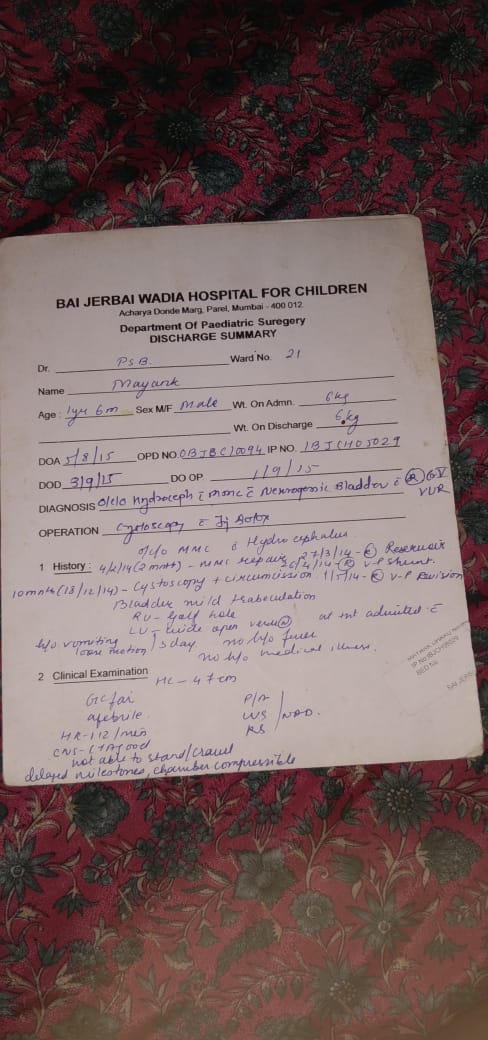 BAI JERBAI WADIA HOSPITAL FOR CHILDREN
Acharya Donde Marg, Parel, Mumbai - 400 012.
Department Of Paediatric Suregery
DISCHARGE SUMMARY
Dr. PSB. Ward No. 21
Name Mayank
Age : 1yr 6m Sex M/F Male Wt. On Admn. 6kg
Wt. On Discharge 6kg
DOA 5/8/15 OPD NO. IP NO.
DOD 3/9/15 DO OP 1/9/15
DIAGNOSIS Hydroceph MMC Neurogenic Bladder R GV
VUR
OPERATION Cystoscopy Inj Botox
O/c/o MMC Hydrocephalus
1 History : 4/2/14 (2 mnth) - MMC repair 27/3/14 - R Reservoir
26/4/14 - R V-P Shunt.
10 mnths (18/12/14) - Cystoscopy + circumcision - R V-P Revision
Bladder mild trabeculation
RU - golf hole
LU - wide open
at admitted
h/o vomiting
loose motion 3 day no h/o fever
no h/o medical illness.
2 Clinical Examination HC - 47cm
GC fair P/A
afebrile
HR - 112/min RS NAD.
CNS - good
not able to stand/crawl
delayed milestones, chamber compressible